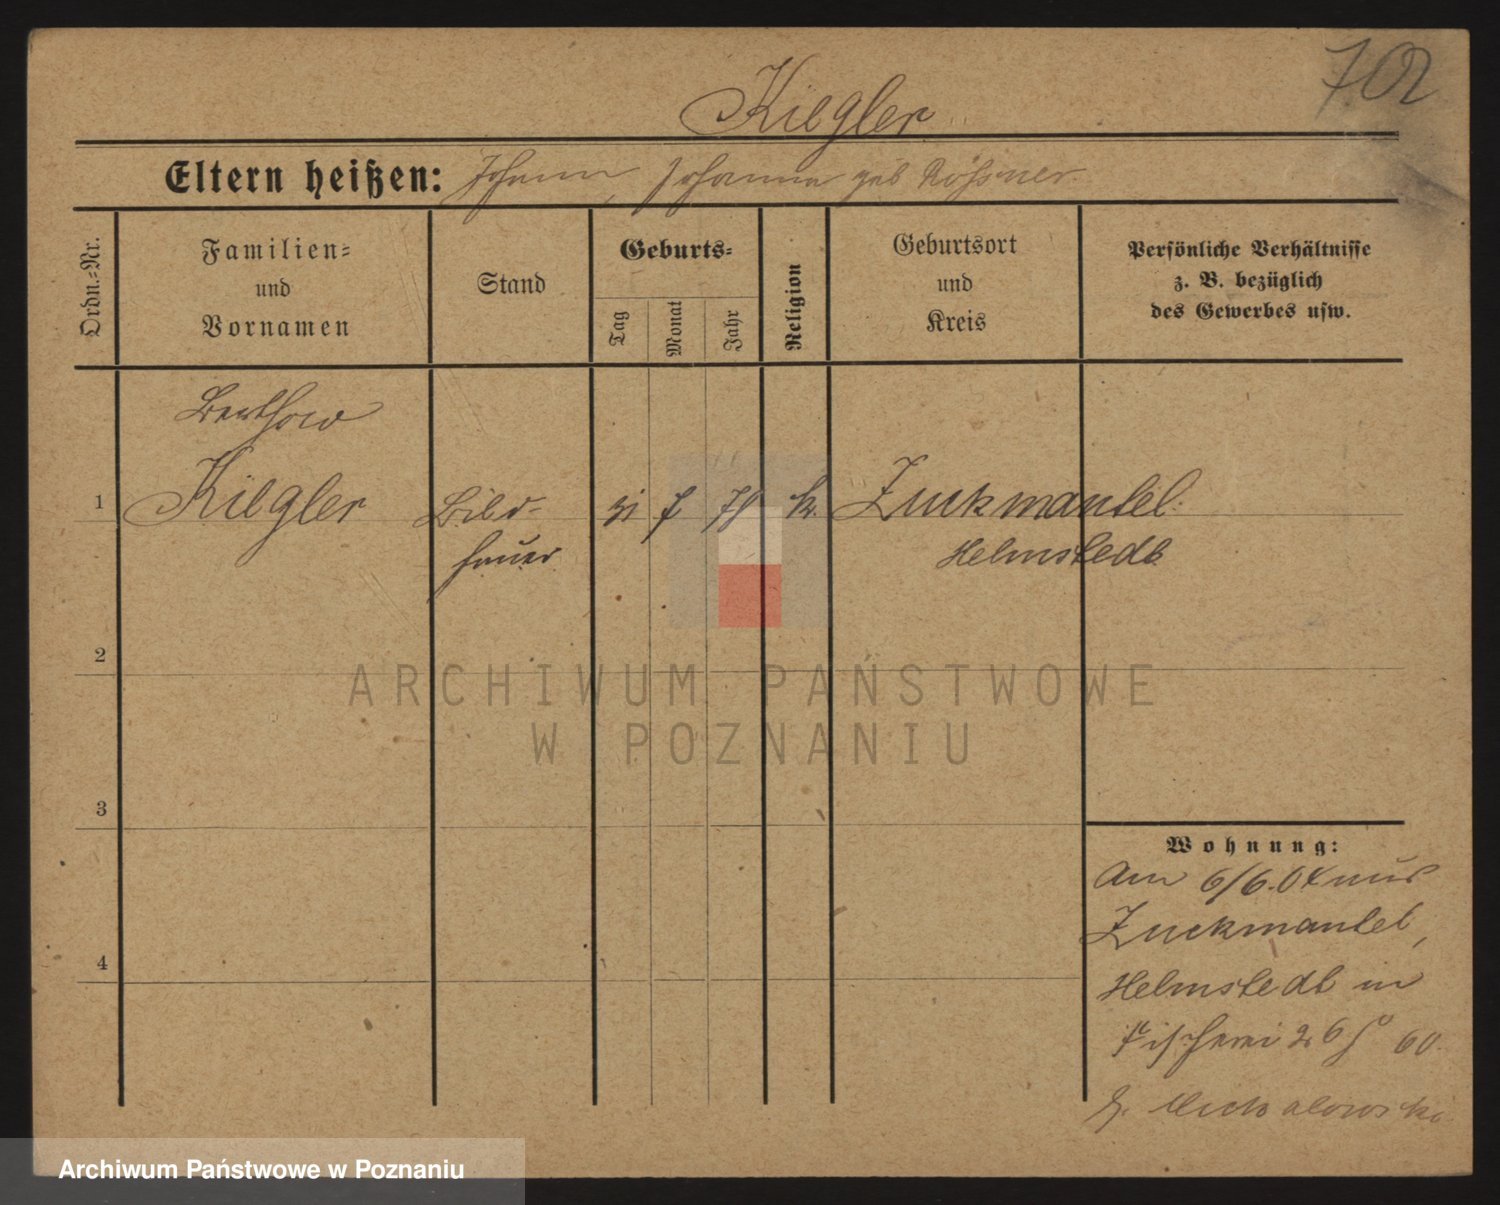 702
Kilgler
Eltern heißen: Johann, Johanna geb Rößner
Ordn.=Nr.
Familien=
und
Vornamen
Stand
Geburts=
Tag
Monat
Jahr
Religion
Geburtsort
und
Kreis
Persönliche Verhältnisse
z. B. bezüglich
des Gewerbes usw.
1
Kilgler
Bild=
hauer
31 7 78 k.
Zuckmantel
Helmstedt
2
3
4
Wohnung:
Am 6/6.04 aus
Zuckmantel,
Helmstedt in
Fischerei 26 60
Michalowski
ARCHIWUM PAŃSTWOWE
W POZNANIU
Archiwum Państwowe w Poznaniu